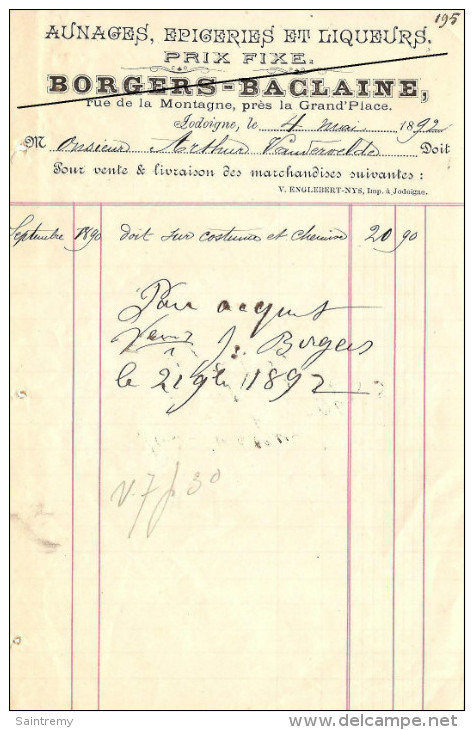 195
AUNAGES, EPICERIES ET LIQUEURS.
PRIX FIXE.
BORGERS-BACLAINE,
rue de la Montagne, près la Grand'Place.
Jodoigne, le 4 mai 1892
Monsieur Arthur Vandervelde Doit
Pour vente & livraison des marchandises suivantes :
V. ENGLEBERT-NYS, Imp. à Jodoigne.
Septembre 1890 doit sur costume et chemise 20 90
Pour acquit
J. Borgers
le 21 1892
V. 7 30
Saintremy
www.delcampe.net